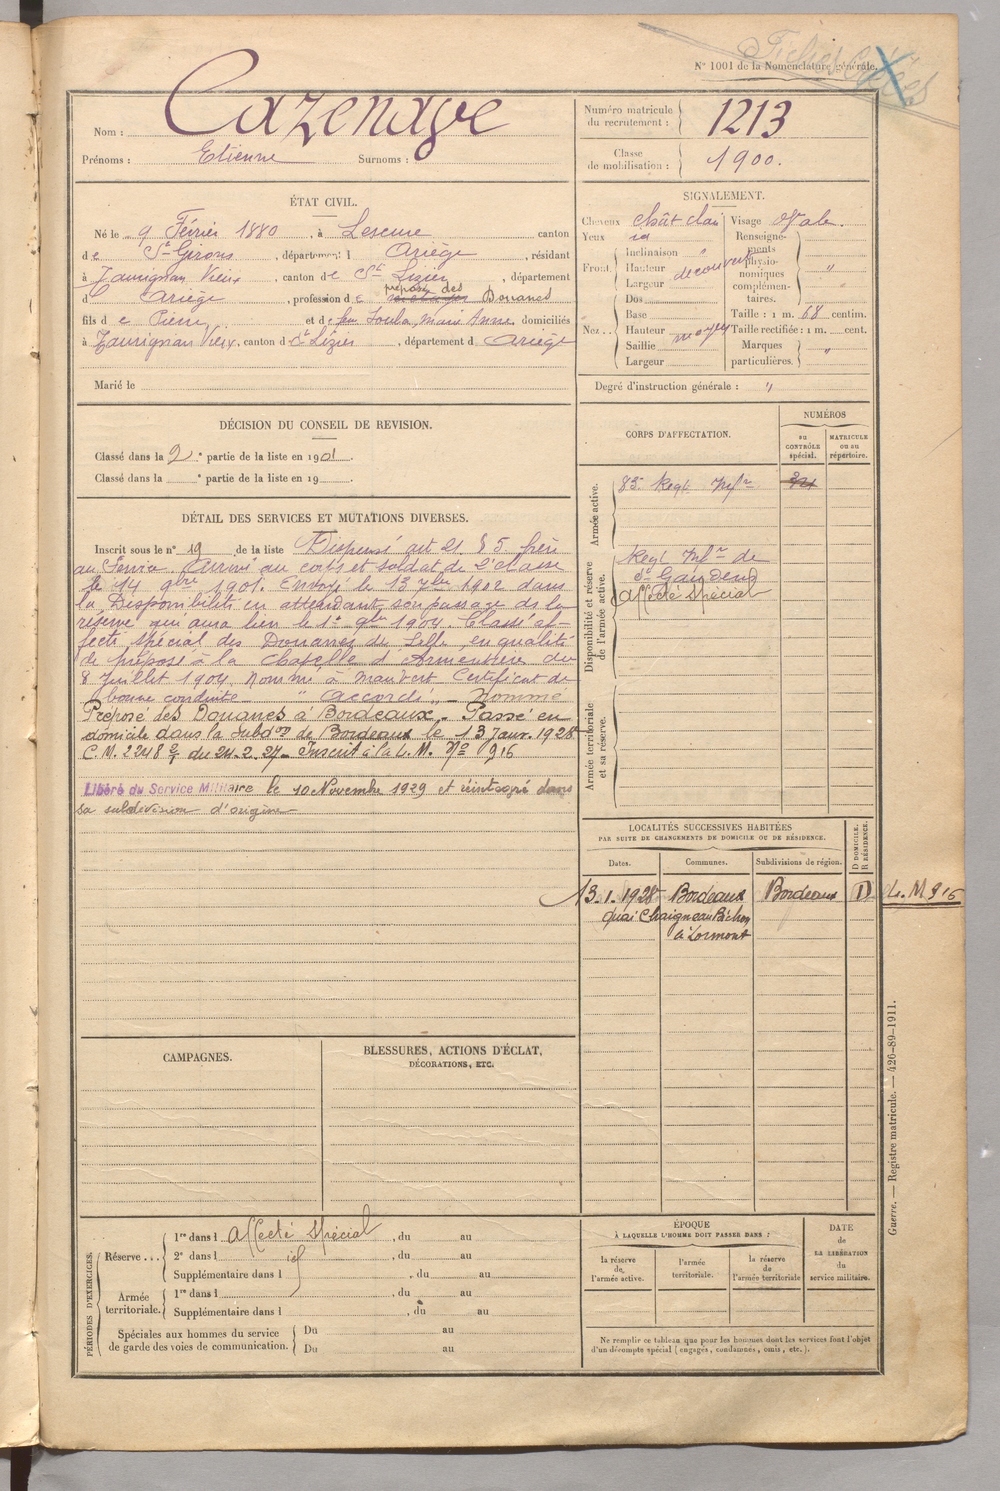 N° 1001 de la Nomenclature générale.
Nom : Cazenave
Prénoms : Etienne Surnoms :
Numéro matricule du recrutement : 1213
Classe de mobilisation : 1900.
ÉTAT CIVIL.
Né le 9 Février 1880, à Lescure canton
de St Girons, département d Ariège, résidant
à Taurignan Vieux, canton de St Lizier, département
d Ariège, profession de préposé des Douanes
fils de Pierre et de feu Soula, Marie Anne domiciliés
à Taurignan Vieux, canton d St Lizier, département d Ariège
Marié le
SIGNALEMENT.
Cheveux chât clair Visage ovale.
Yeux id Renseignements physionomiques complémentaires. "
Front. Inclinaison "
Hauteur découvert
Largeur
Nez. Dos
Base Taille : 1 m. 68 centim.
Hauteur moyen Taille rectifiée : 1 m. cent.
Saillie Marques particulières. "
Largeur
Degré d'instruction générale : "
DÉCISION DU CONSEIL DE REVISION.
Classé dans la 2e partie de la liste en 1901.
Classé dans la e partie de la liste en 19 .
CORPS D'AFFECTATION.
NUMÉROS
au CONTRÔLE spécial.
MATRICULE ou au répertoire.
Armée active.
83e Regt Infie
Disponibilité et réserve de l'armée active.
Regt Infie de
St Gaudens
affecté spécial
Armée territoriale et sa réserve.
DÉTAIL DES SERVICES ET MUTATIONS DIVERSES.
Inscrit sous le n° 19 de la liste Dispensé art 21 § 5. frère
au Service. Arrivé au corps et soldat de 2e classe
le 14 9bre 1901. Envoyé le 13 7bre 1902 dans
la Disponibilité en attendant son passage ds la
réserve qui aura lieu le 1er 9bre 1904. Classé af-
fecté spécial des Douanes de Lille en qualité
de préposé à la Chapelle d'Armentière du
8 Juillet 1904. Nommé à Mauvert Certificat de
bonne conduite " accordé " _ Nommé
Préposé des Douanes à Bordeaux _ Passé en
domicile dans la Subdon de Bordeaux le 13 Janv. 1928
C.M. 2248 2/7 du 24.2.27 _ Inscrit à la L.M. No 916
Libéré du Service Militaire le 10 Novembre 1929 et réintégré dans
sa subdivision d'origine
LOCALITÉS SUCCESSIVES HABITÉES
PAR SUITE DE CHANGEMENTS DE DOMICILE OU DE RÉSIDENCE.
Dates. Communes. Subdivisions de région. D DOMICILE. R RÉSIDENCE.
13.1.1928 Bordeaux Bordeaux D L.M 916
quai Chaigneau Bichon
à Lormont
CAMPAGNES.
BLESSURES, ACTIONS D'ÉCLAT,
DÉCORATIONS, ETC.
PÉRIODES D'EXERCICES.
Réserve... 1re dans l affecté spécial, du au
2e dans l id, du au
Supplémentaire dans l , du au
Armée territoriale. 1re dans l , du au
Supplémentaire dans l , du au
Spéciales aux hommes du service de garde des voies de communication. Du au
Du au
ÉPOQUE
À LAQUELLE L'HOMME DOIT PASSER DANS :
la réserve de l'armée active.
l'armée territoriale.
la réserve de l'armée territoriale
DATE de LA LIBÉRATION du service militaire.
Ne remplir ce tableau que pour les hommes dont les services font l'objet
d'un décompte spécial (engagés, condamnés, omis, etc.).
Guerre. — Registre matricule. — 426-89-1911.